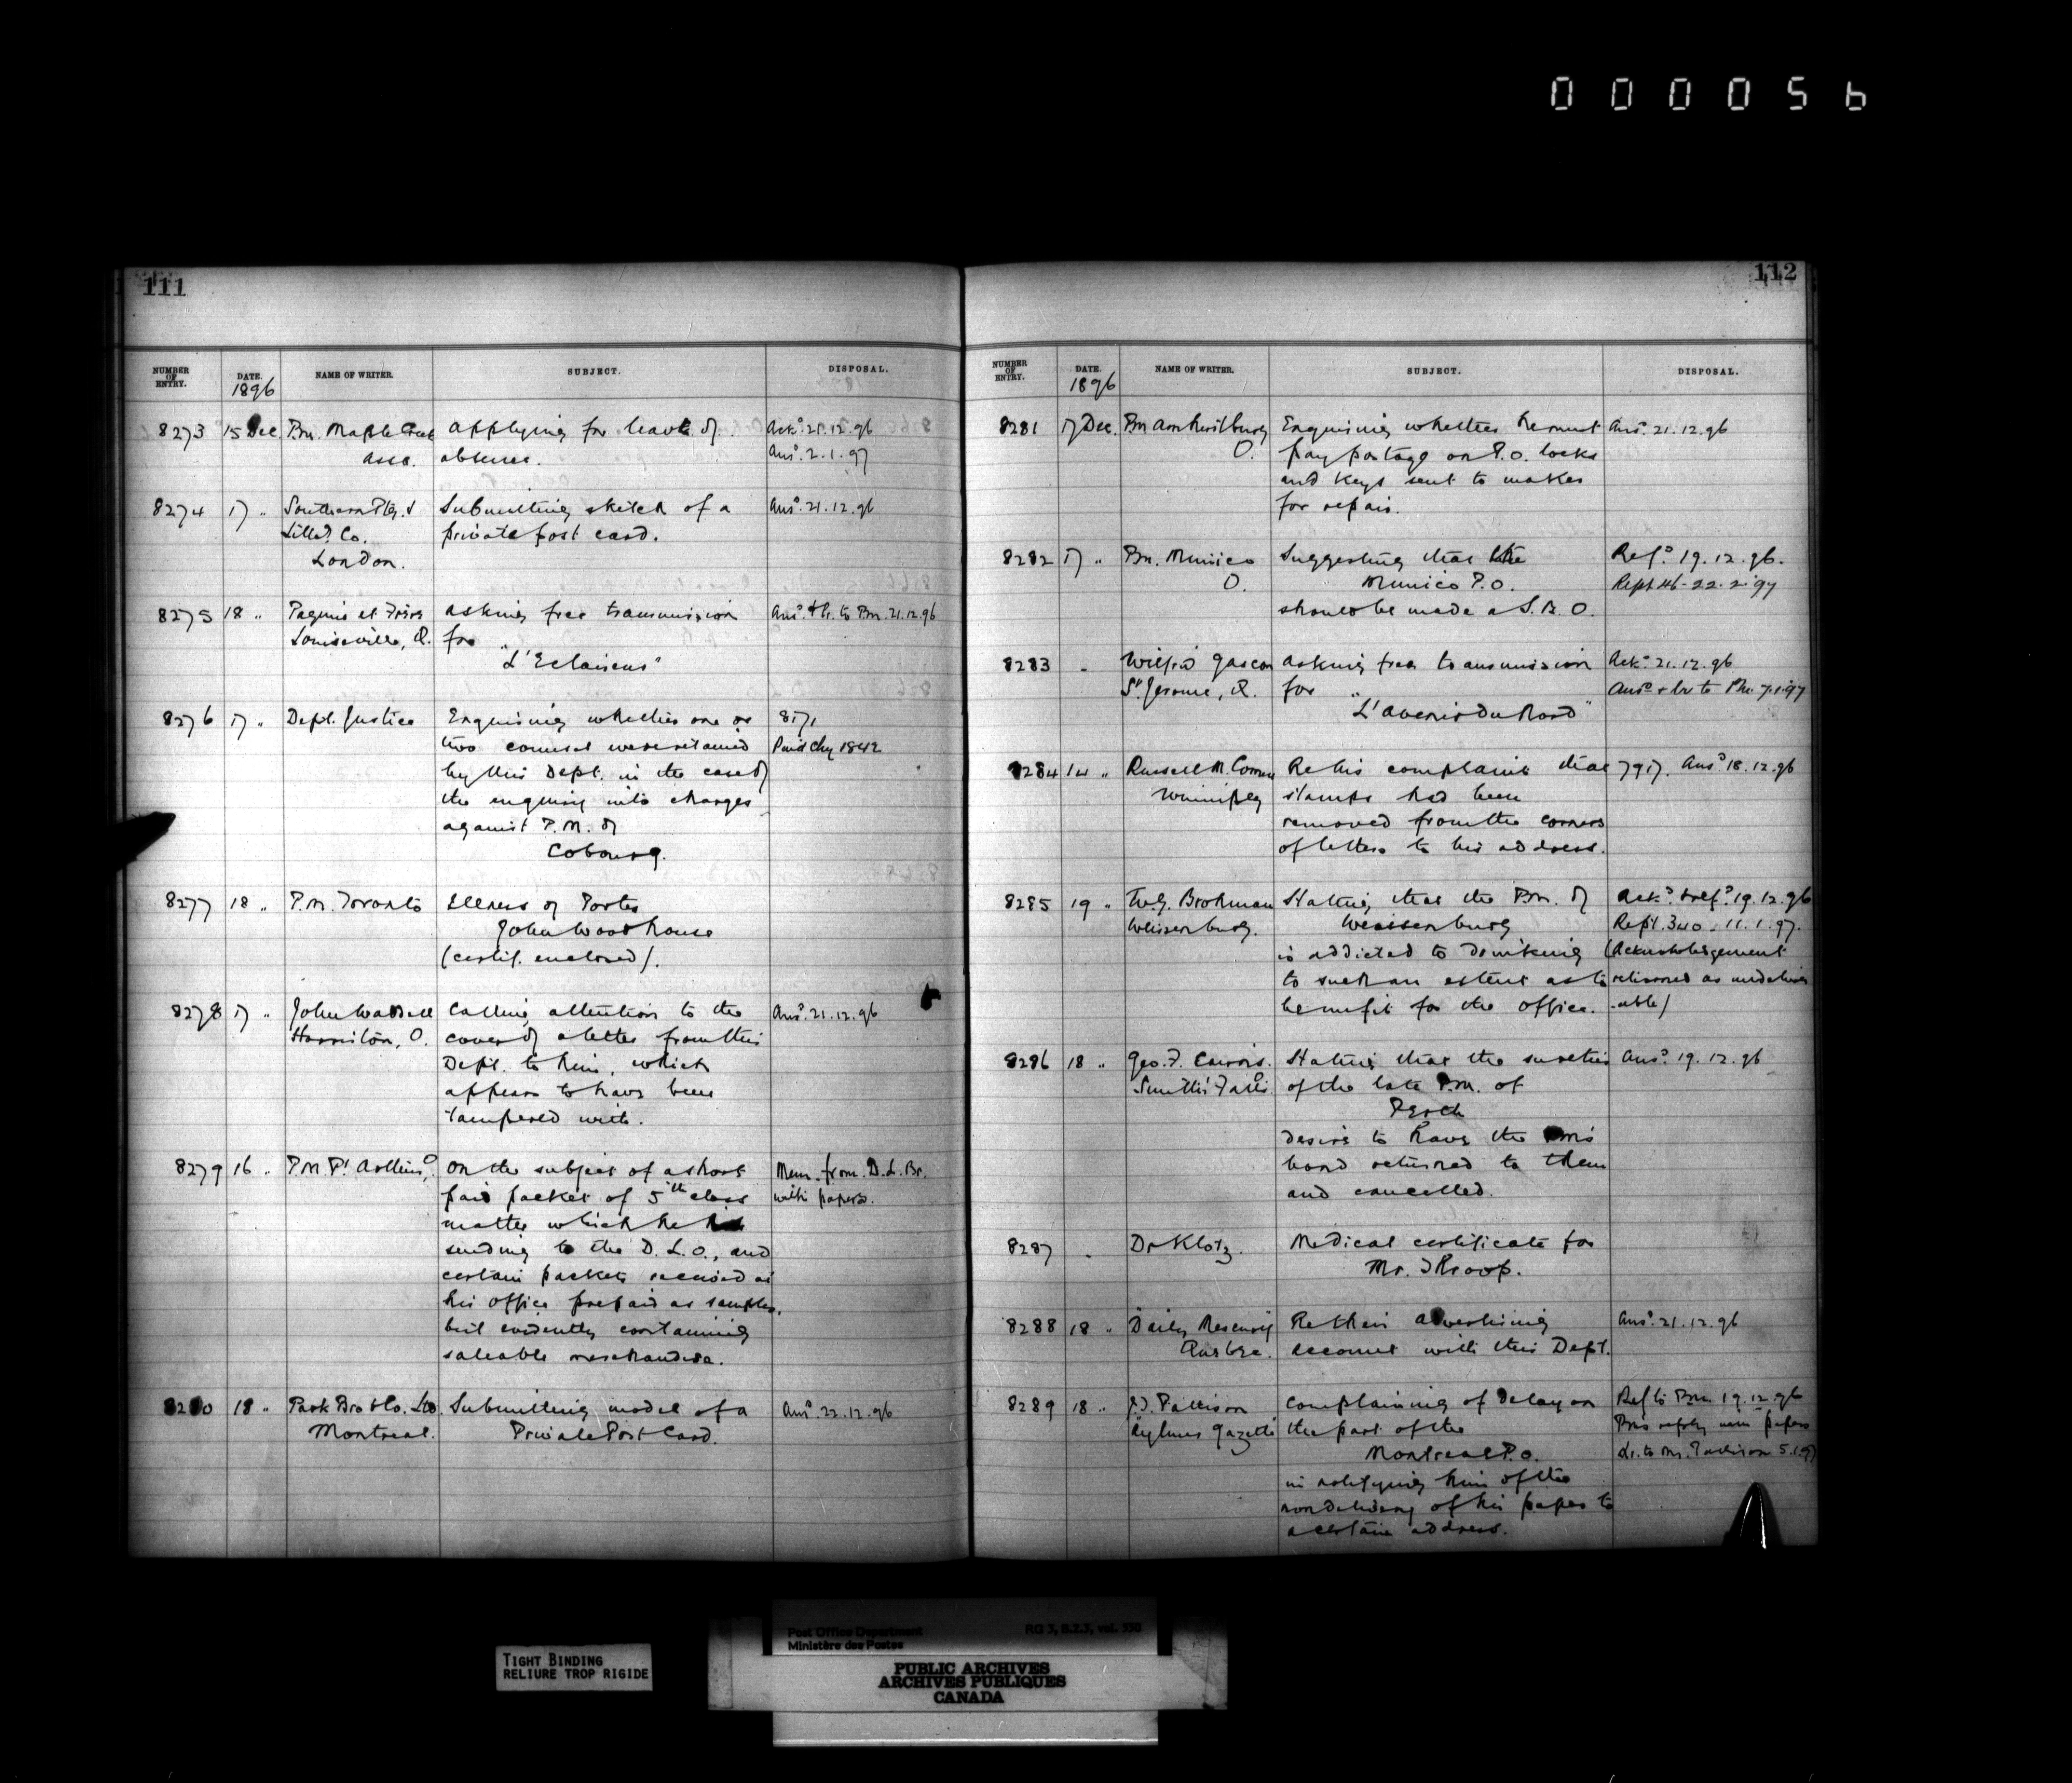 0 0 0 0 5 6
111
NUMBER OF ENTRY. DATE. NAME OF WRITER. SUBJECT. DISPOSAL.
1896
8273 15 Dec. Pm. Maple Creek applying for leave of Ackd. 21.12.96
Assa. absence. Ansd. 2.1.97
8274 17 " Southern Ptg. & Submitting sketch of a Ansd. 21.12.96
Litho. Co. private post card.
London.
8275 18 " et Louiseville, Q. asking free transmission for Ansd. & lr. to Pm. 21.12.96
"L'Eclaireur"
8276 17 " Dept. Justice Enquiring whether one or 8171
two counsel were retained Paid Chq 1842
by this Dept. in the case of
the enquiry into charges
against P.M. of
Cobourg.
8277 18 " P.M. Toronto Illness of Porter
John Woodhouse
(certif. enclosed).
8278 17 " John Waddell Calling attention to the Ansd. 21.12.96
Hamilton, O. cover of a letter from this
Dept. to him, which
appears to have been
tampered with.
8279 16 " P.M. Pt. On the subject of a short Mem. from D.L. Br.
paid packet of 5th class with papers.
matter which he is
sending to the D.L.O., and
certain packets received at
his office prepaid as samples,
but evidently containing
saleable merchandise.
8280 18 " Park Bro & Co. Ltd. Submitting model of a Ansd. 22.12.96
Montreal. Private Post Card.
112
NUMBER OF ENTRY. DATE. NAME OF WRITER. SUBJECT. DISPOSAL.
1896
8281 17 Dec. Pm Amherstburg Enquiring whether he must Ansd. 21.12.96
O. pay postage on P.O. locks
and keys sent to maker
for repair.
8282 17 " Pm. Mimico Suggesting that the Refd. 19.12.96.
O. Mimico P.O. Rept 46 - 22.2.97
should be made a S.B.O.
8283 " Wilfrid Gascon asking free transmission Ackd. 21.12.96
St. Jerome, Q. for Ansd. & lr to Pm. 7.1.97
"L'avenir du Nord"
8284 14 " Russell M. Re his complaint that 7917. Ansd. 18.12.96
Winnipeg stamps had been
removed from the corners
of letters to his address.
8285 19 " Brohman Stating that the Pm. of Ackd. & refd. 19.12.96
Weissenburg. Weissenburg Rept. 340. 11.1.97.
is addicted to drinking (Acknowledgement
to such an extent as to returned as undeliver
benefit for the office. -able)
8286 18 " Geo. F. Cairns. Stating that the sureties Ansd. 19.12.96
Smiths Falls O. of the late P.M. of
Perth
desire to have the Pm's
bond returned to them
and cancelled.
8287 " Dr Klotz. Medical certificate for
Mr. Throop.
8288 18 " "Daily Mercury" Re their advertising Ansd. 21.12.96
Quebec. account with this Dept.
8289 18 " J.J. Pattison complaining of delay on Ref to Pm. 19.12.96
"Aylmer Gazette" the part of the Pm's reply with papers
Montreal P.O. Lr. to Mr. Pattison 5.1.97
in notifying him of the
nondelivery of his paper to
a certain address.
TIGHT BINDING
RELIURE TROP RIGIDE
Post Office Department RG 3, B.2.3, vol. 350
Ministère des Postes
PUBLIC ARCHIVES
ARCHIVES PUBLIQUES
CANADA